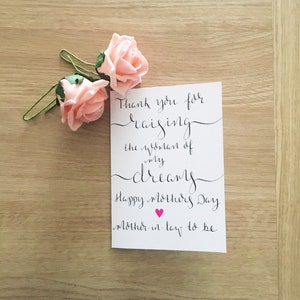 Thank you for
raising
the woman of
my
dreams
Happy Mothers Day
mother in law to be